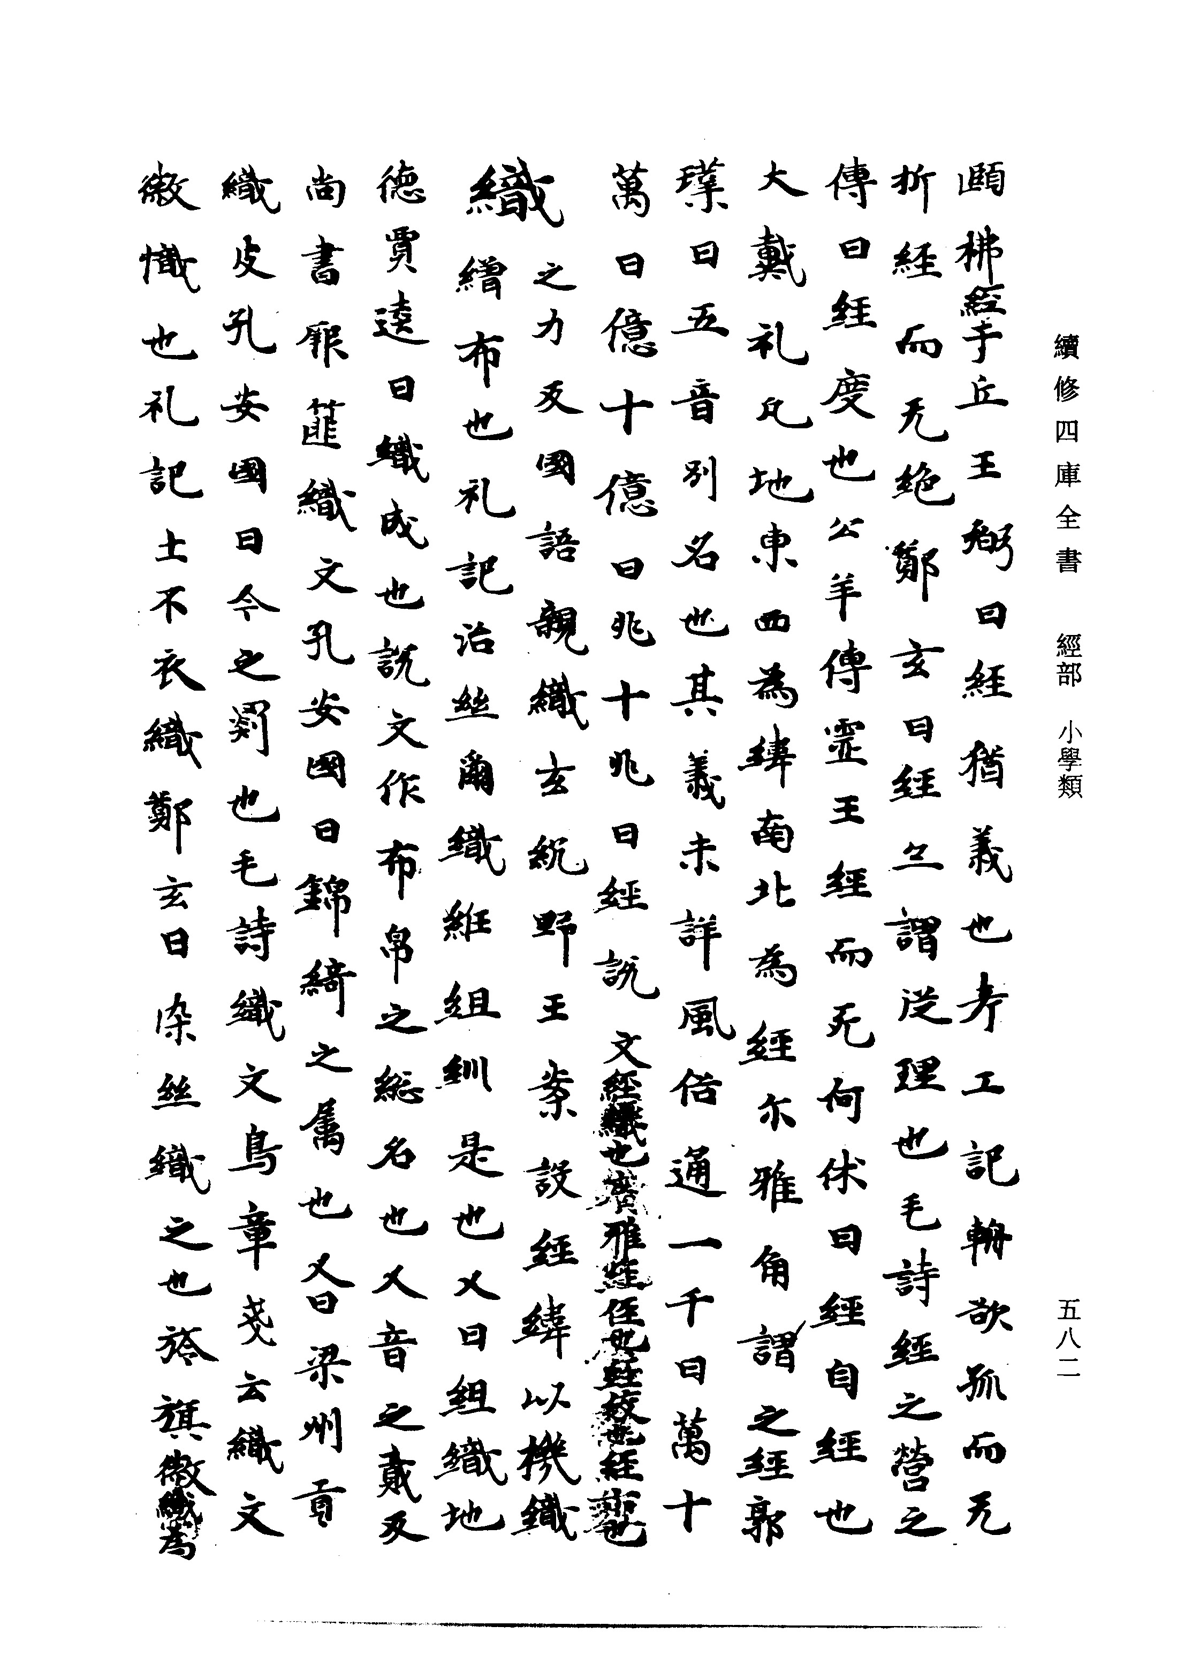 續修四庫全書　經部　小學類
五八二
頤拂經于丘王弼曰經猶義也考工記輈欲孤而无
折經而无絕鄭玄曰經亡謂從理也毛詩經之營之
傳曰經度也公羊傳靈王經而死何休曰經自經也
大戴礼凡地東西為緯南北為經尒雅角謂之經郭
璞曰五音別名也其義未詳風俗通一千曰萬十
萬曰億十億曰兆十兆曰經說文經織也廣雅經徑也經絞也經
織之力反國語親織玄紞野王案設經緯以機織
繒布也礼記治絲繭織紝組紃是也又曰組織地
德賈逵曰織成也說文作布帛之総名也又音之貳反
尚書厥篚織文孔安國曰錦綺之属也又曰梁州貢
織皮孔安國曰今之罽也毛詩織文鳥章戔云織文
徽幟也礼記士不衣織鄭玄曰染絲織之也旍旗徽織為